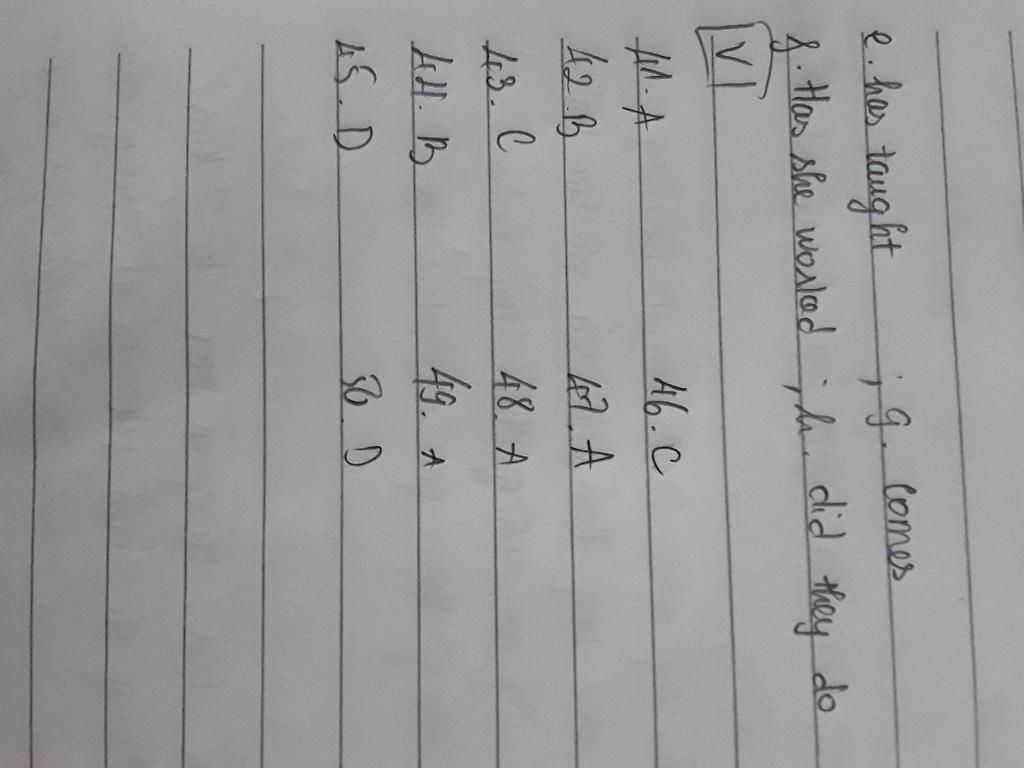 e. has taught ; g. comes
f. Has she worked ; h. did they do
V
41. A 46. C
42. B 47. A
43. C 48. A
44. B 49. A
45. D 50. D